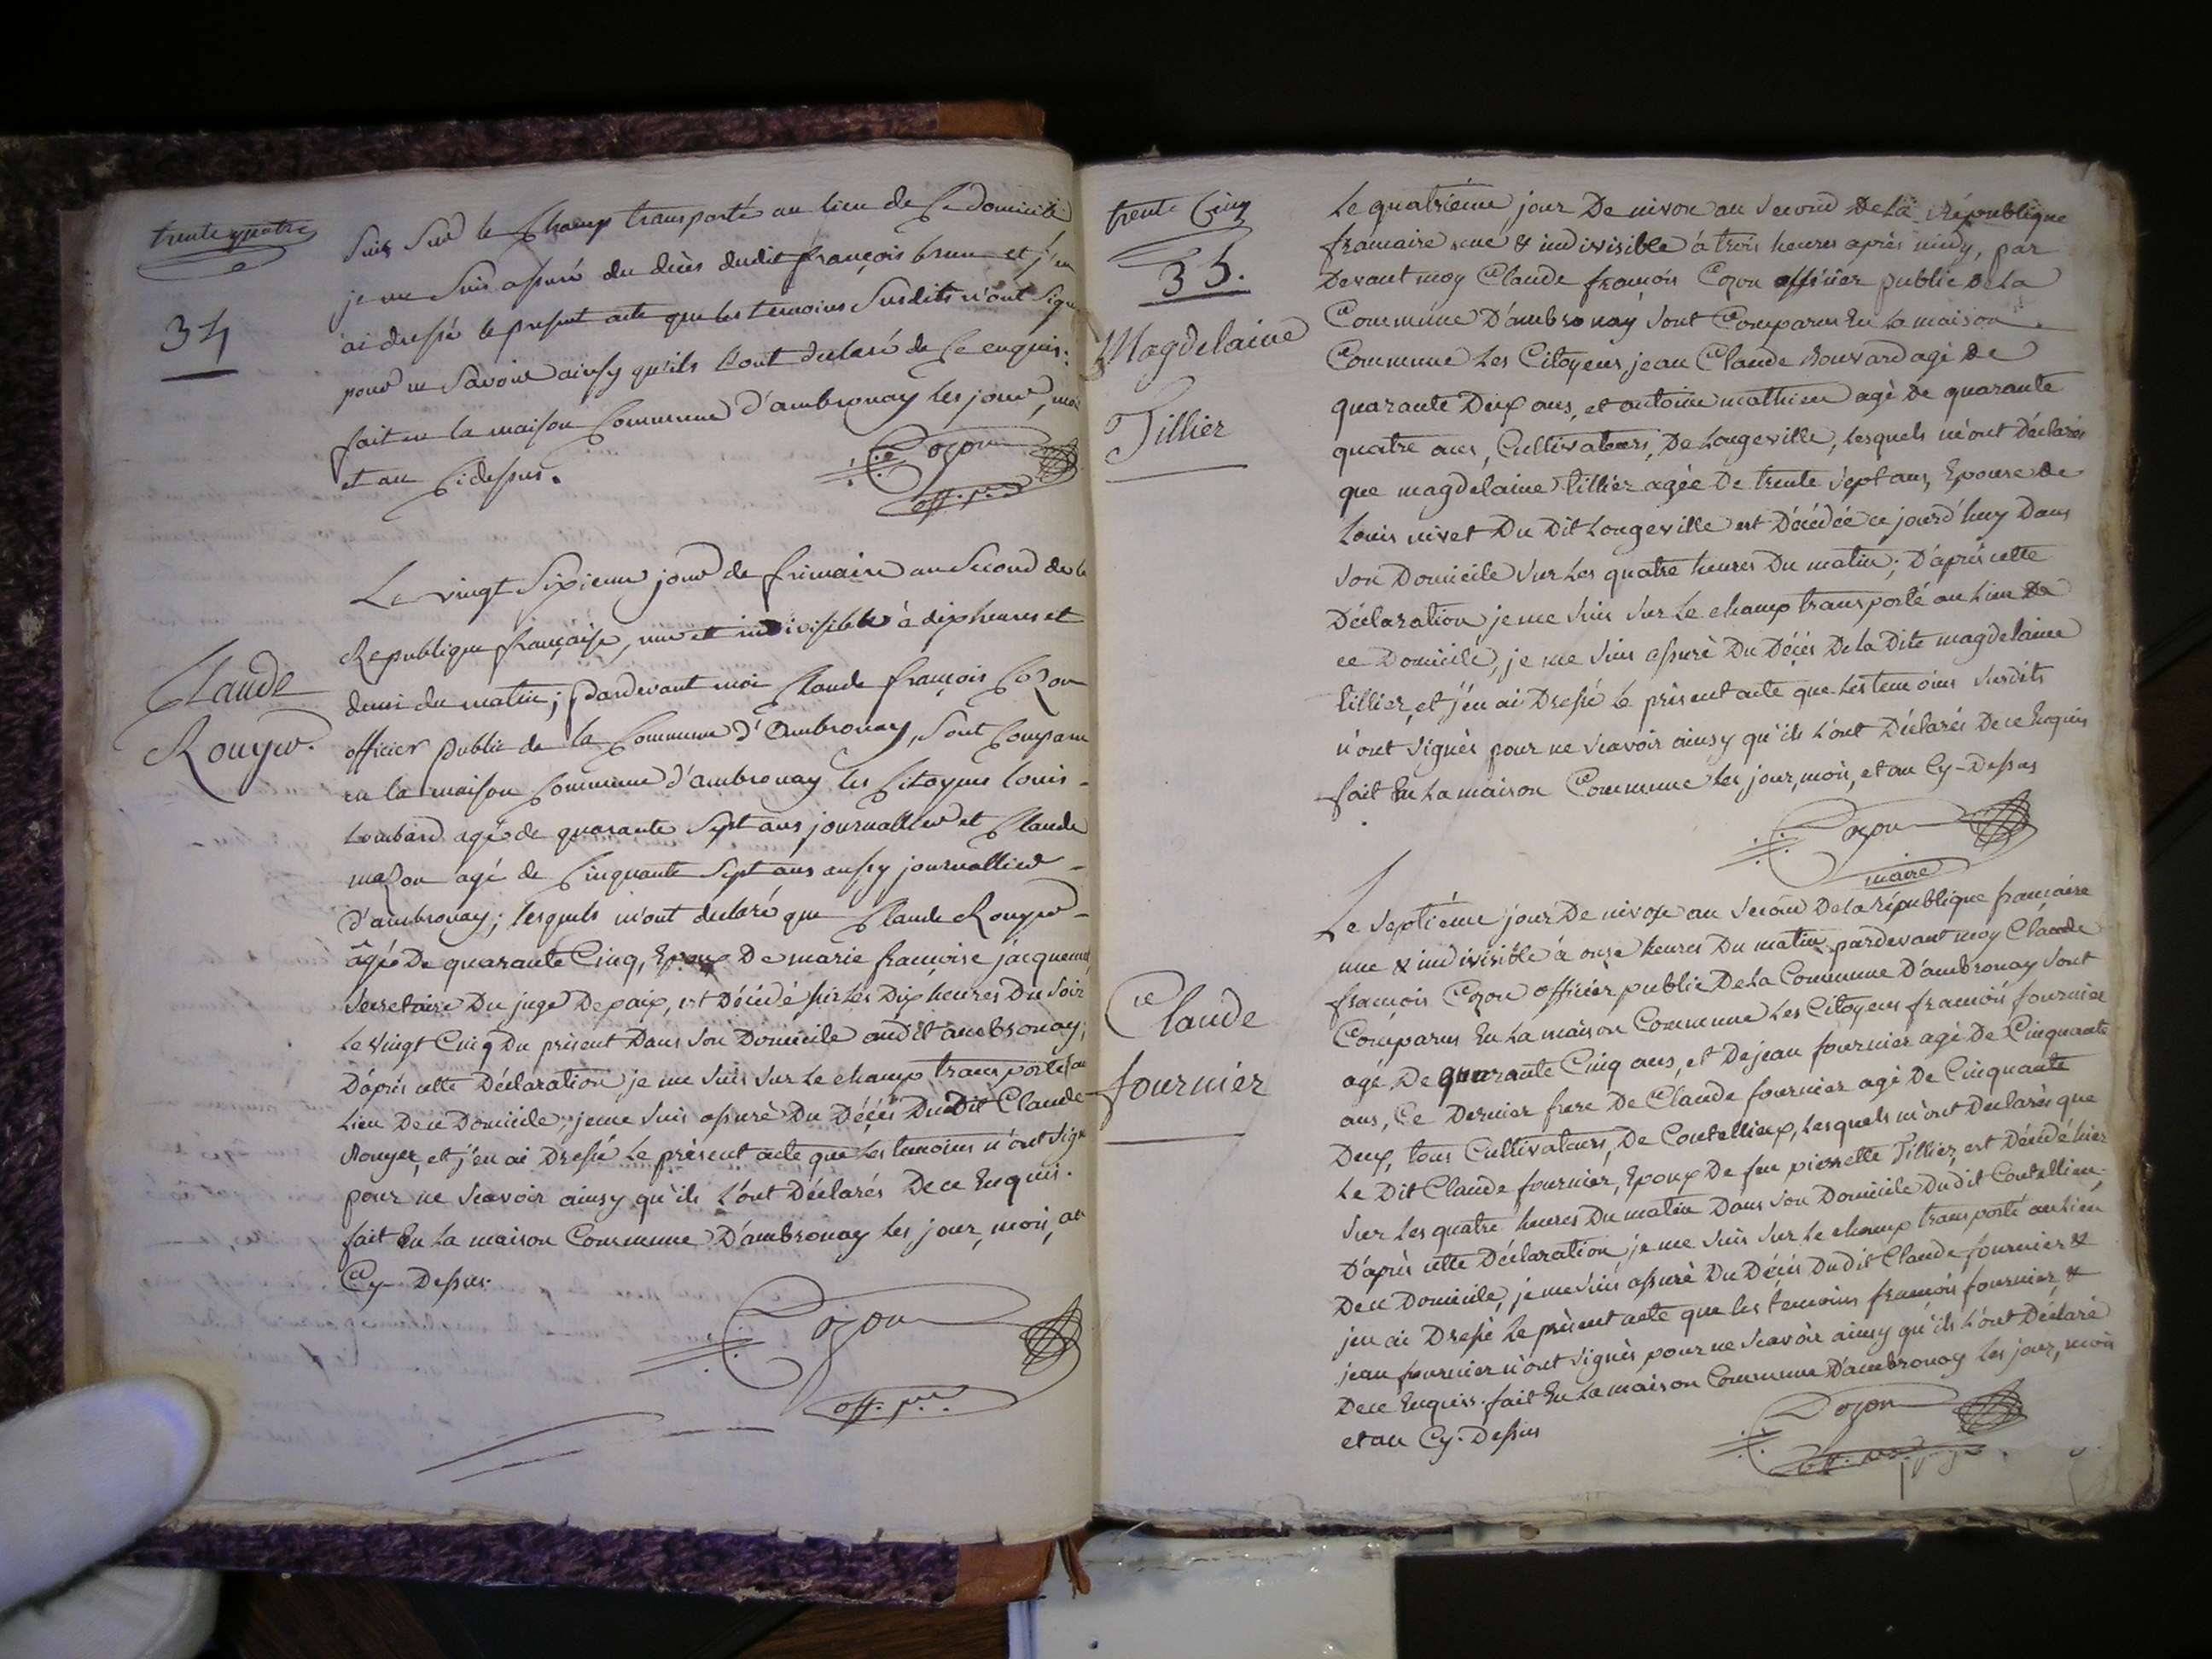 trente quatre
34
suis sur le champ transporté au lieu de ce domicile
je me suis assuré du décès dudit françois brun et j'en
ai dressé le present acte que les temoins susdits n'ont signé
pour ne savoir ainsy qu'ils l'ont declaré de ce enquis.
fait en la maison commune d'ambronay les jour, moi
et an ci dessus.
Cozon
off. p.ic
Claude
Rouyer.
Le vingt sixieme jour de frimaire an second de la
Republique française, une et indivisible à dix heures et
demi du matin; pardevant moi Claude françois Cozon
officier public de la Commune d'Ambronay, sont comparu
en la maison commune d'ambronay les Citoyens louis
Lombard agé de quarante sept ans journallier et Claude
mazon agé de cinquante sept ans aussy journallier
d'ambronay; lesquels m'ont declaré que Claude Rouyer
âgée De quarante Cinq, Epoux De marie francoise jacquemet
secretaire Du juge De paix, est Décédé sur Les Dix heures Du soir
Le vingt Cinq Du présent Dans son Domicile audit ambronay;
D'après cette Déclaration je me suis sur Le champ transporté au
Lieu De ce Domicile, je me suis assuré Du Décès DuDit Claude
Rouyer, et j'en ai Dressé Le présent acte que Les temoins n'ont signé
pour ne scavoir ainsy qu'ils L'ont Déclarés De ce Enquis.
fait En La maison Commune D'ambronay les jour, mois, an
Cy-Dessus.
Cozon
off. p.ic
trente Cinq
35.
Magdelaine
Tillier
Le quatriéme jour De nivose an second De La République
francaise une & indivisible à trois heures après midy, par
Devant moy Claude francois Cozon officier public De La
Commune D'ambronay sont Comparus En La maison
Commune Les Citoyens jean Claude Bouvard agé De
quarante Deux ans, et antoine mathieu agé De quarante
quatre ans, Cultivateurs, De Longeville, lesquels m'ont Déclarés
que magdelaine tillier agée De trente sept ans, Epouse De
Louis nivet Du Dit Longeville est Décédée ce jourd'huy Dans
son Domicile sur Les quatre heures Du matin; D'après cette
Déclaration je me suis sur Le champ transporté au Lieu De
ce Domicile, je me suis assuré Du Décès De La Dite magdelaine
tillier, et j'en ai Dressé le présent acte que Les temoins susdits
n'ont signés pour ne scavoir ainsy qu'ils L'ont Déclarés De ce Enquis
fait En La maison Commune Les jour, mois, et an Cy-Dessus
Cozon
maire
Claude
fournier
Le septiéme jour De nivose an second De La république francaise
une & indivisible à onze heures Du matin pardevant moy Claude
francois Cozon officier public De La Commune D'ambronay sont
Comparus En La maison Commune Les Citoyens francois fournier
agé De quarante Cinq ans, et De jean fournier agé De Cinquante
ans, Ce Dernier frere De Claude fournier agé De Cinquante
Deux, tous Cultivateurs, De Coutellieux, Lesquels m'ont Declarés que
Le Dit Claude fournier, Epoux De feu pierrette Tillier, est Décédé hier
sur Les quatre heures Du matin Dans son Domicile Dudit Coutellieu.
D'après cette Déclaration je me suis sur Le champ transporté au Lieu
De ce Domicile, je me suis assuré Du Décès Dudit Claude fournier &
jen ai Dressé Le présent acte que les temoins francois fournier &
jean fournier n'ont signés pour ne scavoir ainsy qu'ils L'ont Déclaré
De ce Enquis. fait En La maison Commune D'ambronay Les jour, mois
et an Cy-Dessus
Cozon